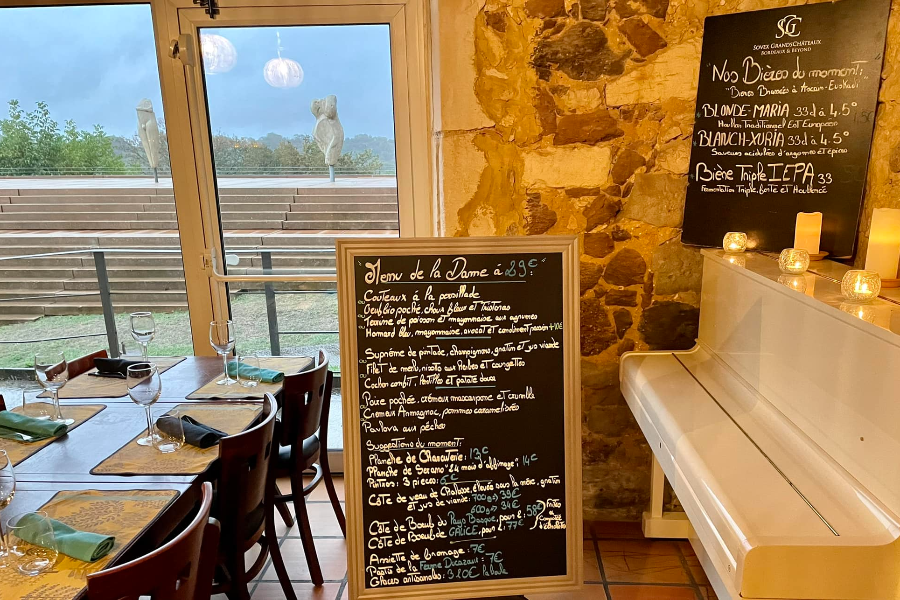 SOVEX GRANDSCHÂTEAUX
BORDEAUX & BEYOND
"Nos Bières du moment:"
"Bières Brassées à Ascain-Euskadi
BLONDE-MARIA 33cl à 4.5°
Houblon Traditionnel Est Européens
BLANCH-XURIA 33cl à 4.5°
Saveurs acidulées d'agrumes et épices
Bière Triple IEPA 33
Fermentation Triple, forte et Houblonée
"Menu de la Dame à 29€"
Couteaux à la persillade
Oeuf bio poché, choux fleur et
Terrine de poisson et mayonnaise aux agrumes
Homard bleu, mayonnaise, avocat et condiment +10€
Suprême de pintade, champignons, gratin et jus viande
Filet de merlu, risoto aux herbes et courgettes
Cochon confit, lentilles et patate douce
Poire pochée, crémeux mascarpone et crumble
Cremeux Armagnac, pommes caramélisées
Pavlova aux pêches
Suggestions du moment:
Planche de Charcuterie: 13€
Planche de Serano "24 mois d'affinage" 14€
3 pièces: 6€
Côte de veau de Chalosse, élevée sous la mère, gratin
et jus de viande: 700g → 39€
600g → 34€
Côte de Boeuf du Pays Basque, pour 2, 58€
Côte de Boeuf de GALICE, pour 2, 77€
Assiette de fromage: 7€
Pastis de la Ferme Ducazaut: 7€
Glaces artisanales: 3.20€ la boule